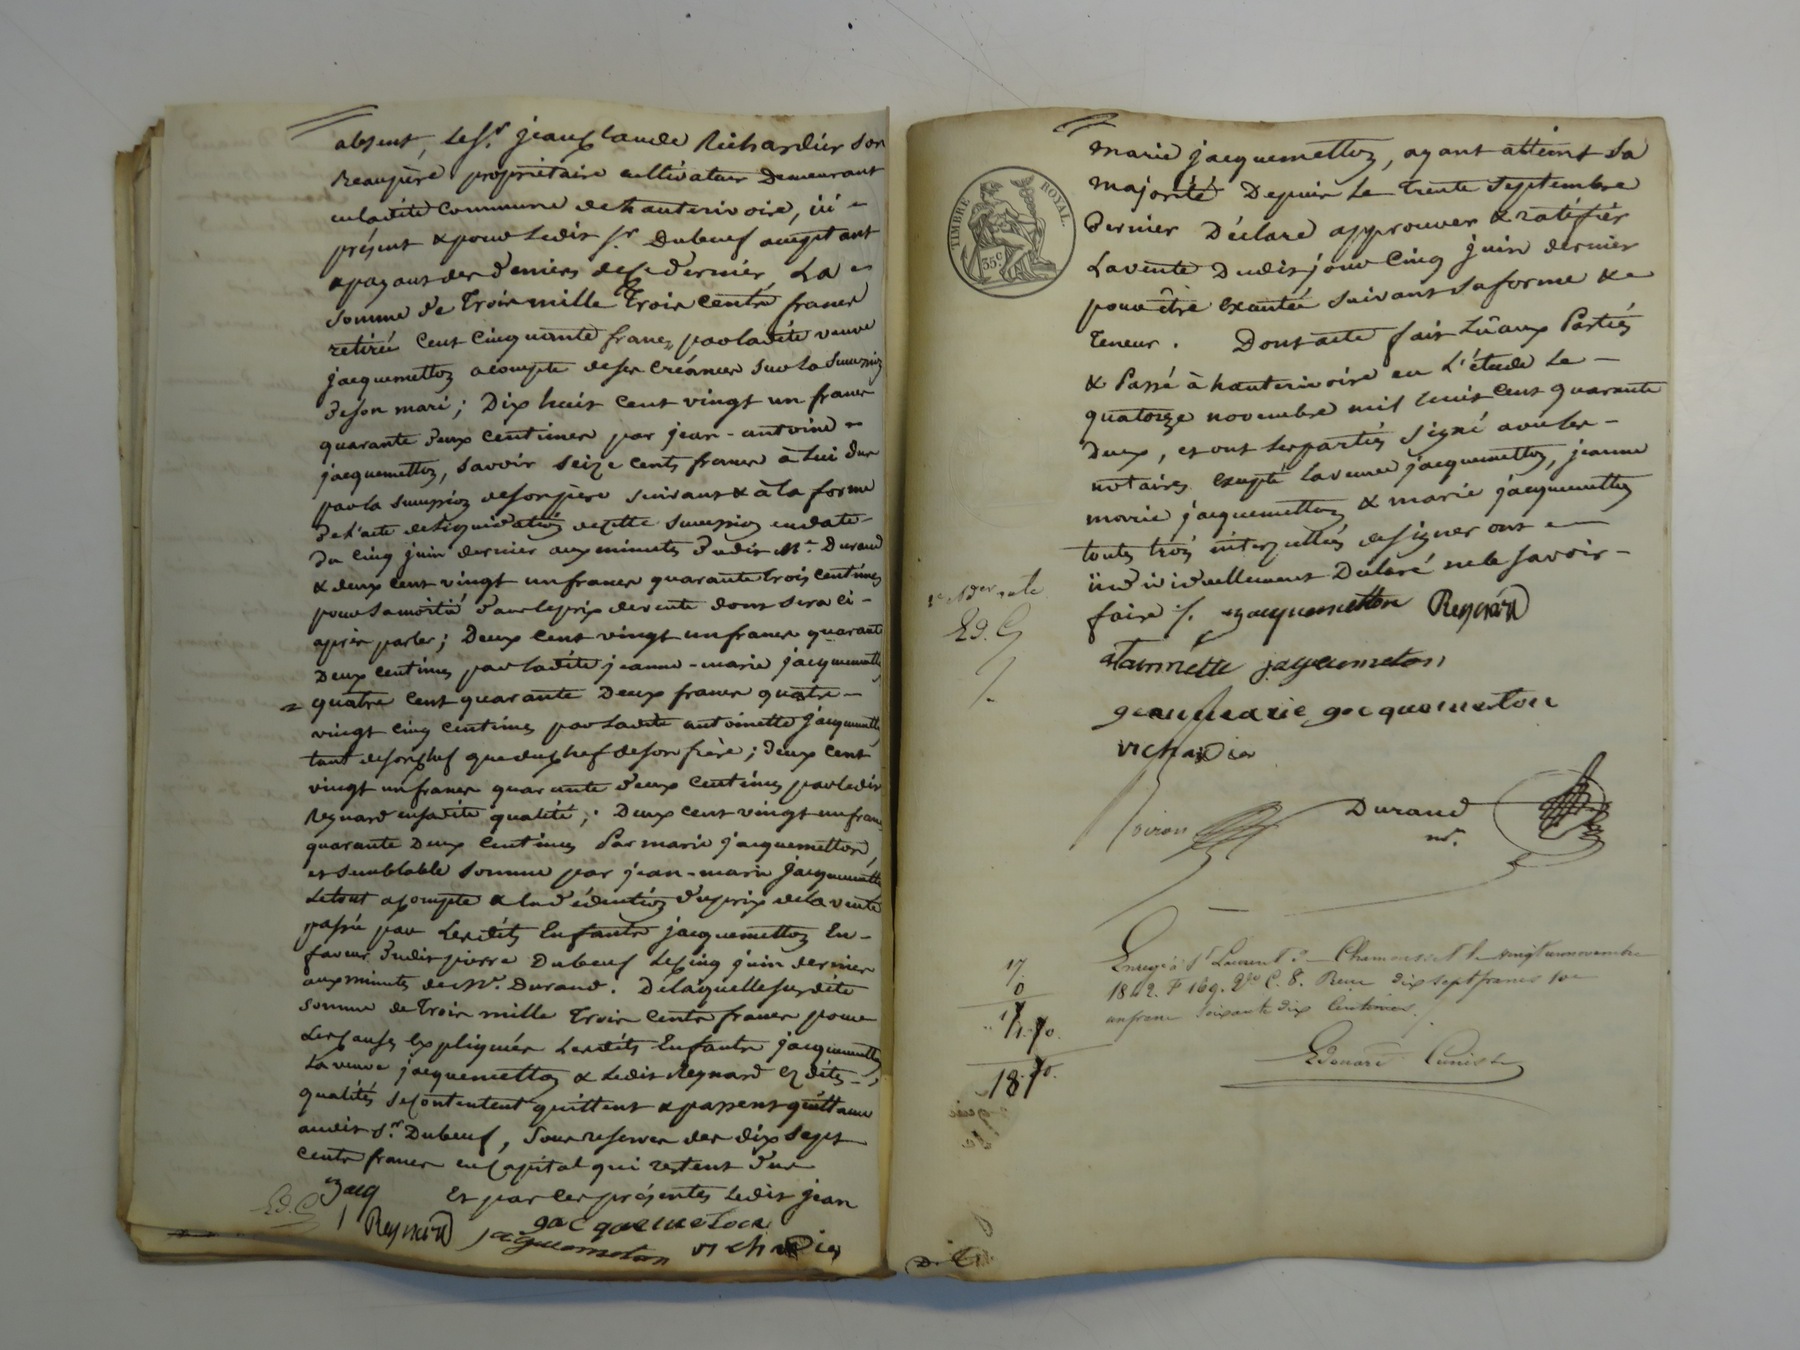 absent, le sr. jean Claude Richardier son
Beaupère propriétaire cultivateur Demeurant
en ladite Commune de hauterivoire, ici
présent & pour Ledit sr. Dubeuf acceptant
& payant des deniers de ce dernier, La
Somme de Trois mille Trois Cents francs
retirée Cent Cinquante francs par ladite veuve
jacquemetton acompte de ses Créances Sur la Succession
de son mari; Dix huit cent vingt un francs
quarante deux Centimes par jean-antoine
jacquemetton, Savoir Seize Cents francs à Lui dus
par la Succession de son père Suivant & à la forme
de l'acte de liquidation de cette Succession en date
du Cinq juin dernier aux minutes dudit Me. Durand
& deux Cent vingt un francs quarante trois Centimes
pour Sa moitié dans le prix de vente dont Sera Ci-
après parler; Deux Cent vingt un francs quarante
Deux Centimes par ladite jeanne-marie jacquemetton
quatre Cent quarante Deux francs quatre-
vingt Cinq Centimes par Ladite antoinette jacquemetton
tant de son chef que du chef de son frère; Deux Cent
vingt un francs quarante deux Centimes par ledit
Reynard en sadite qualité; Deux Cent vingt un francs
quarante Deux Centimes Par marie jacquemetton,
et Semblable Somme par jean-marie jacquemetton
Le tout acompte & en déduction du prix de la vente
passée par Lesdits Enfants jacquemetton En
faveur dudit pierre Dubeuf Le Cinq juin dernier
aux minutes de Me. Durand. De laquelle susdite
Somme de Trois mille Trois Cents francs pour
Les Causes Expliquées Lesdits Enfants jacquemetton
La veuve jacquemetton & Ledit Reynard Esdites
qualités Se Contentent quittent & passent quittance
audit Sr. Dubeuf, Sous reserves des dix Sept
Cents francs en Capital qui restent dus
Et par Ces présentes Ledit jean
jacq
Ed. C
Reynard
jacquemeton
jaquemeton
richardier
TIMBRE ROYAL
35 c
marie jacquemetton, ayant atteint Sa
majorité Depuis Le Trente Septembre
Dernier Déclare approuver & ratifier
La vente Dudit jour Cinq juin dernier
pour être Exécutée Suivant Sa forme &
Teneur. Dont acte fait Lû aux Parties
& Passé à hauterivoire en L'étude Le
quatorze novembre mil huit Cent quarante
deux, et ont Les parties Signé avec les
notaires Excepté La veuve jacquemetton, jeanne
marie jacquemetton & marie jacquemetton
toutes trois interpellées de Signer ont
individuellement Déclaré ne le Savoir
faire /. jacquemetton Reynard
Ed. C
antoinette jaquemeton
jeanmarie jacquemeton
richardier
Durand
nre.
Enregé à St Laurent de Chamousset le vingt un novembre
1842. fo 169. Vo C. 8. Reçu dix sept francs 10e
un franc Soixante dix Centimes.
17
0
17
1.70.
18.70.